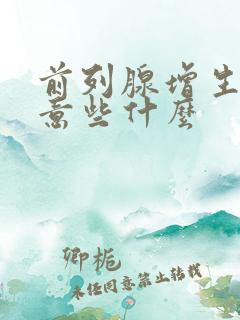 前列腺增生
意些什麼
卿栀
未经同意禁止转载